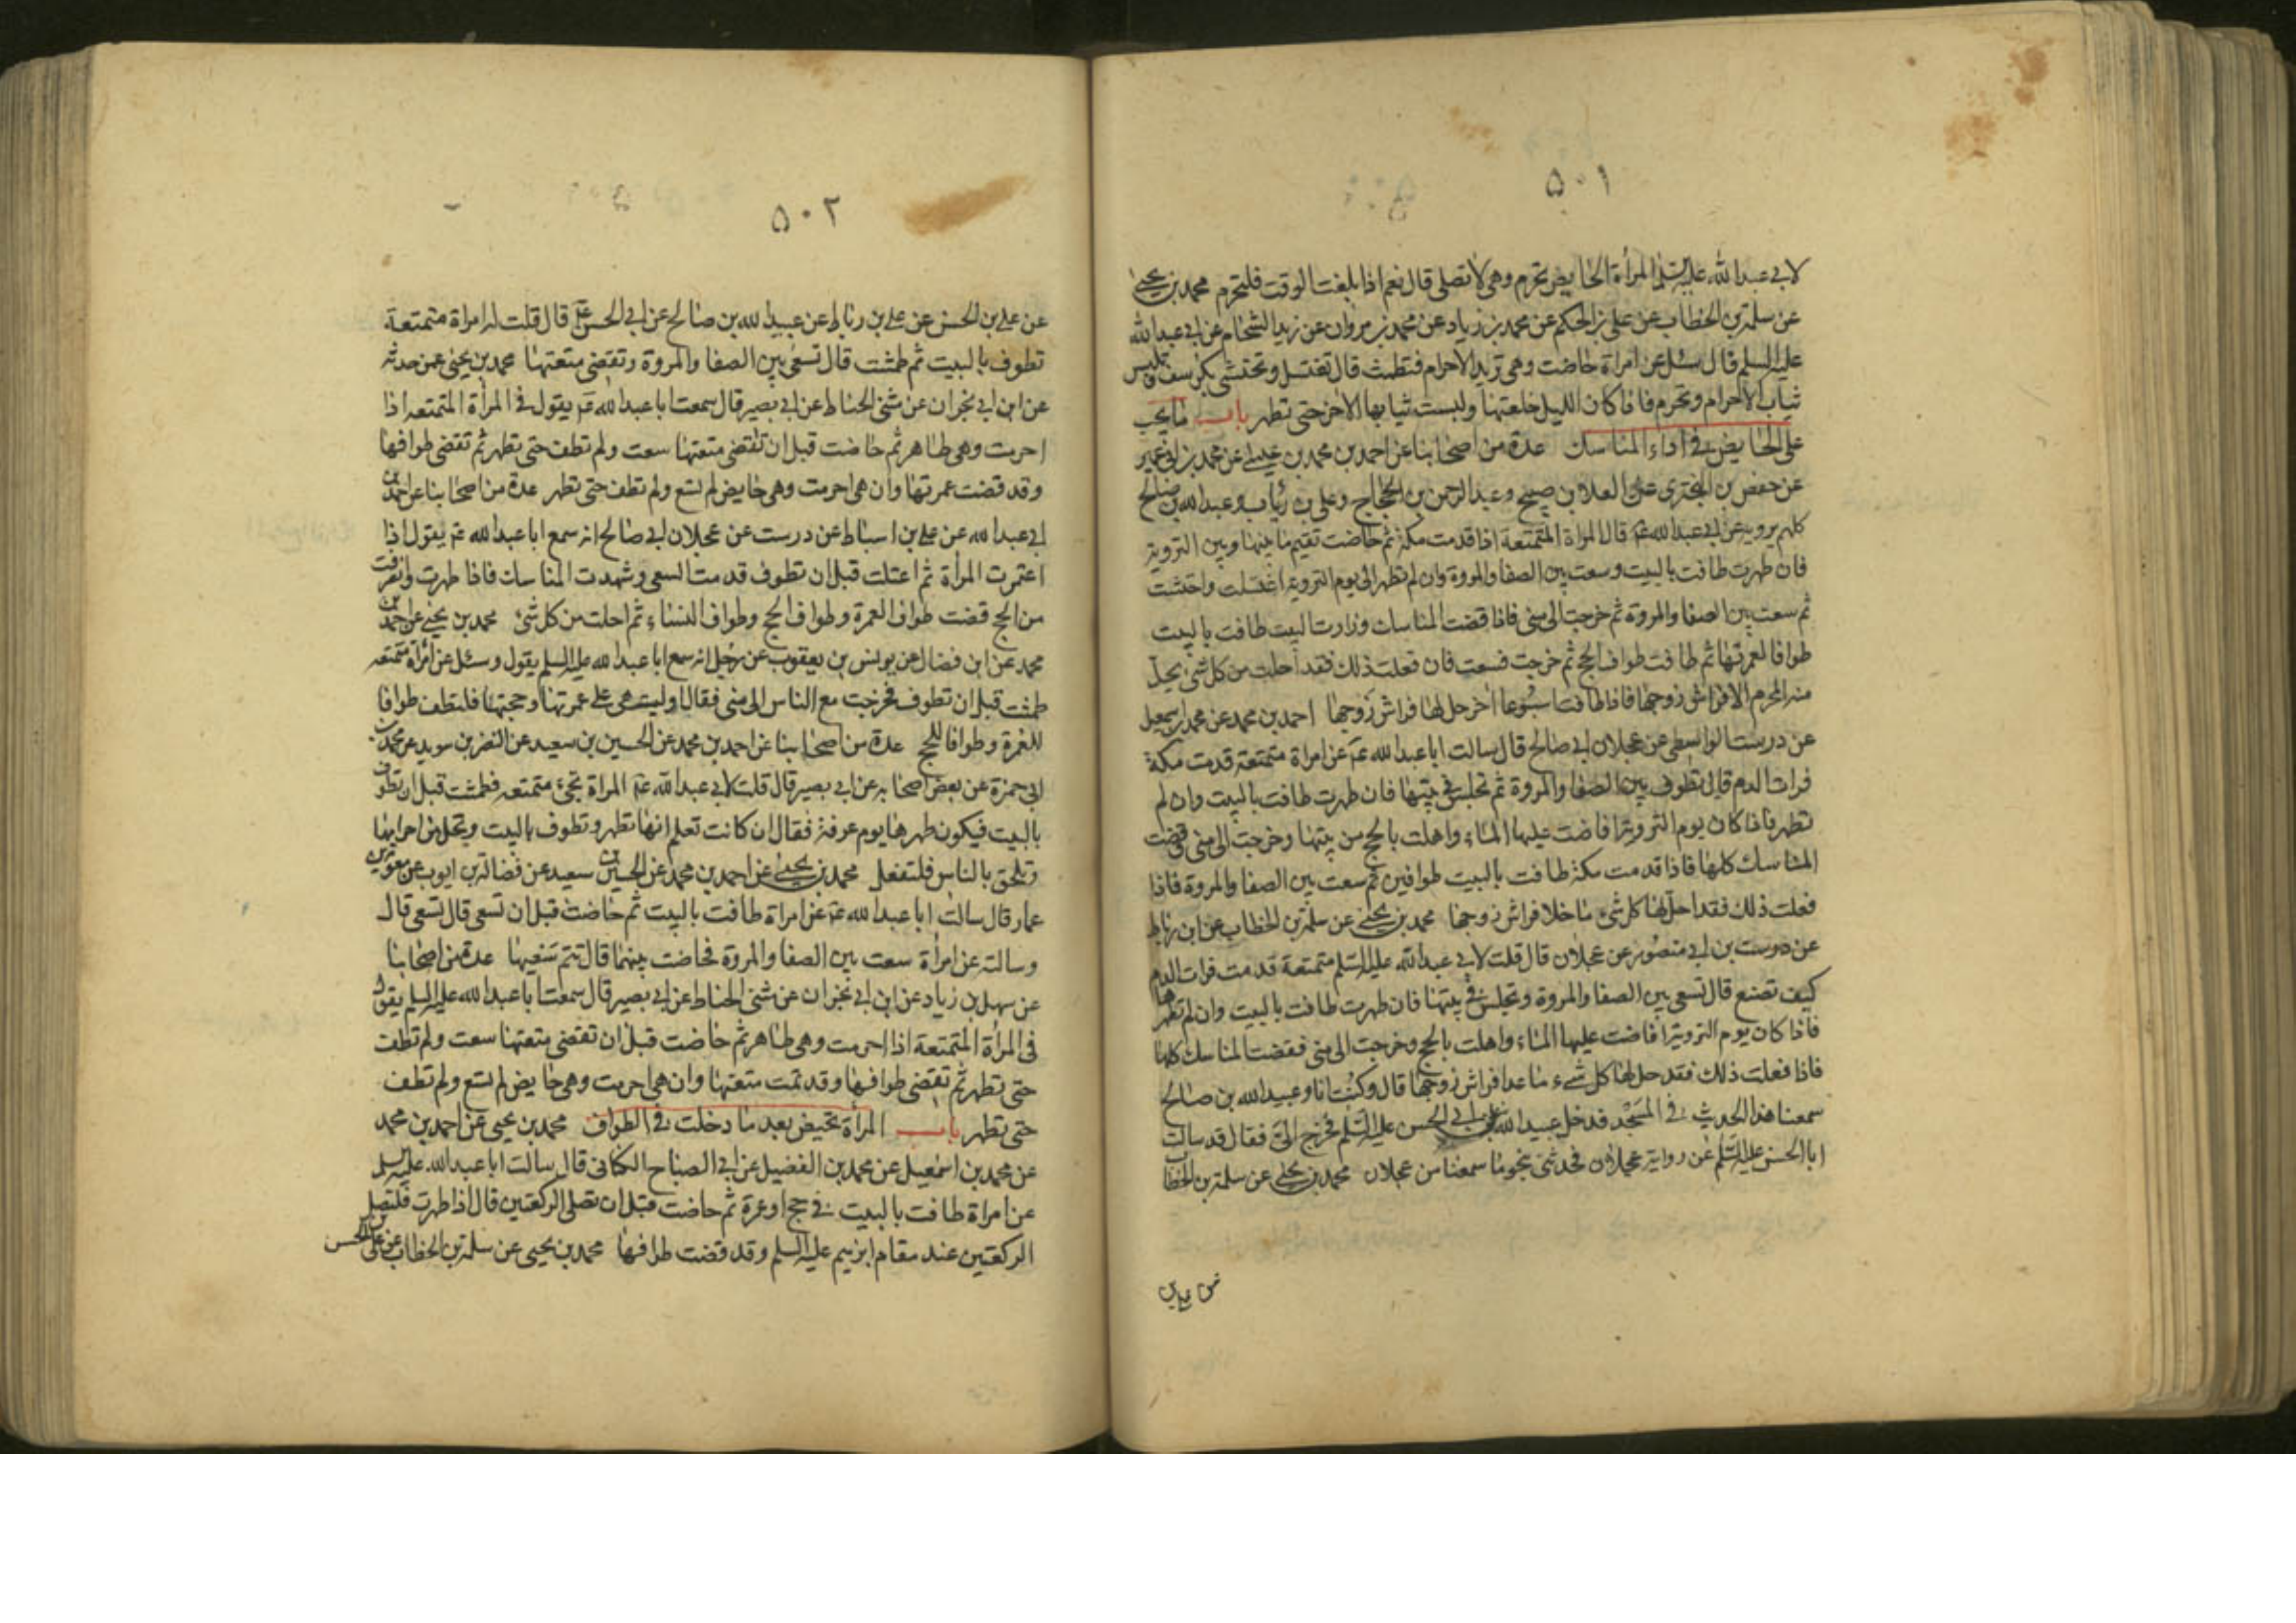 ٥٠١
لابي عبد الله عليه السلم المرأة الحايض تحرم وهي لا تصلي قال نعم اذا بلغت الوقت فلتحرم محمد بن يحيى
عن سلمة بن الخطاب عن علي بن الحكم عن محمد بن زياد عن محمد بن مروان عن زيد الشحام عن ابي عبد الله
عليه السلم قال سئل عن امراة حاضت وهي تريد الاحرام فتطمث قال تغتسل وتحتشي بكرسف وتلبس
ثياب الاحرام وتحرم فاذا كان الليل خلعتها ولبست ثيابها الاخر حتى تطهر باب ما يجب
على الحايض في اداء المناسك عدة من اصحابنا عن احمد بن محمد بن عيسى عن محمد بن ابي عمير
عن حفص بن البختري عن العلا بن صبيح وعبد الرحمن بن الحجاج وعلي بن رئاب وعبد الله بن صالح
كلهم يرويه عن ابي عبد الله ع قال المراة المتمتعة اذا قدمت مكة ثم حاضت تقيم ما بينها وبين التروية
فان طهرت طافت بالبيت وسعت بين الصفا والمروة وان لم تطهر الى يوم التروية اغتسلت واحتشت
ثم سعت بين الصفا والمروة ثم خرجت الى منى فاذا قضت المناسك وزارت البيت طافت بالبيت
طوافا لعمرتها ثم طافت طواف الحج ثم خرجت فسعت فان فعلت ذلك فقد احلت من كل شئ يحل
منه المحرم الا فراش زوجها فاذا طافت اسبوعا اخر حل لها فراش زوجها احمد بن محمد عن محمد بن اسمعيل
عن درست الواسطي عن عجلان ابي صالح قال سالت ابا عبد الله ع عن امراة متمتعة قدمت مكة
فرات الدم قال تطوف بين الصفا والمروة ثم تجلس في بيتها فان طهرت طافت بالبيت وان لم
تطهر فاذا كان يوم التروية افاضت عليها الماء واهلت بالحج من بيتها وخرجت الى منى وقضت
المناسك كلها فاذا قدمت مكة طافت بالبيت طوافين ثم سعت بين الصفا والمروة فاذا
فعلت ذلك فقد احل لها كل شئ ما خلا فراش زوجها محمد بن يحيى عن سلمة بن الخطاب عن ابن رباط
عن درست بن ابي منصور عن عجلان قال قلت لابي عبد الله عليه السلم متمتعة قدمت فرات الدم
كيف تصنع قال تسعى بين الصفا والمروة وتجلس في بيتها فان طهرت طافت بالبيت وان لم تطهر
فاذا كان يوم التروية افاضت عليها الماء واهلت بالحج وخرجت الى منى فقضت المناسك كلها
فاذا فعلت ذلك فقد حل لها كل شيء ما عدا فراش زوجها قال وكنت انا وعبيد الله بن صالح
سمعنا هذا الحديث في المسجد فدخل عبيد الله على ابي الحسن عليه السلم فخرج الي فقال قد سالت
ابا الحسن عليه السلم عن رواية عجلان فحدثني بنحو ما سمعنا من عجلان محمد بن يحيى عن سلمة بن الخطاب
عن علي بن
٥٠٢
عن علي بن الحسن عن علي بن رباط عن عبيد الله بن صالح عن ابي الحسن ع قال قلت له امراة متمتعة
تطوف بالبيت ثم طمثت قال تسعى بين الصفا والمروة وتقضي متعتها محمد بن يحيى عمن حدثه
عن ابن ابي نجران عن مثنى الحناط عن ابي بصير قال سمعت ابا عبد الله ع يقول في المرأة المتمتعه اذا
احرمت وهي طاهر ثم حاضت قبل ان تقضي متعتها سعت ولم تطف حتى تطهر ثم تقضي طوافها
وقد قضت عمرتها وان هي احرمت وهي حايض لم تسع ولم تطف حتى تطهر عدة من اصحابنا عن احمد بن
ابي عبد الله عن علي بن اسباط عن درست عن عجلان ابي صالح انه سمع ابا عبد الله ع يقول اذا
اعتمرت المرأة ثم اعتلت قبل ان تطوف قدمت السعي وشهدت المناسك فاذا طهرت وانصرفت
من الحج قضت طواف العمرة وطواف الحج وطواف النساء ثم احلت من كل شئ محمد بن يحيى عن احمد بن
محمد عن ابن فضال عن يونس بن يعقوب عن رجل انه سمع ابا عبد الله عليه السلم يقول وسئل عن امرأة متمتعه
طمثت قبل ان تطوف فخرجت مع الناس الى منى فقال اوليت هي على عمرتها وحجتها فلتطف طوافا
للعمرة وطوافا للحج عدة من اصحابنا عن احمد بن محمد عن الحسين بن سعيد عن النضر بن سويد عن محمد بن
ابي حمزة عن بعض اصحابه عن ابي بصير قال قلت لابي عبد الله ع المراة تجئ متمتعه فطمثت قبل ان تطوف
بالبيت فيكون طهرها يوم عرفة فقال ان كانت تعلم انها تطهر وتطوف بالبيت وتحل من احرامها
وتلحق بالناس فلتفعل محمد بن يحيى عن احمد بن محمد عن الحسين بن سعيد عن فضالة بن ايوب عن معوية بن
عمار قال سالت ابا عبد الله ع عن امراة طافت بالبيت ثم حاضت قبل ان تسعى قال تسعى قال
وسالته عن امرأة سعت بين الصفا والمروة فحاضت بينهما قال تتم سعيها عدة من اصحابنا
عن سهل بن زياد عن ابن ابي نجران عن مثنى الحناط عن ابي بصير قال سمعت ابا عبد الله عليه السلم يقول
في المرأة المتمتعة اذا احرمت وهي طاهر ثم حاضت قبل ان تقضي متعتها سعت ولم تطف
حتى تطهر ثم تقضي طوافها وقد تمت متعتها وان هي احرمت وهي حايض لم تسع ولم تطف
حتى تطهر باب المرأة تحيض بعد ما دخلت في الطواف محمد بن يحيى عن احمد بن محمد
عن محمد بن اسمعيل عن محمد بن الفضيل عن ابي الصباح الكناني قال سالت ابا عبد الله عليه السلم
عن امراة طافت بالبيت في حج او عمرة ثم حاضت قبل ان تصلي الركعتين قال اذا طهرت فلتصل
الركعتين عند مقام ابرهيم عليه السلم وقد قضت طوافها محمد بن يحيى عن سلمة بن الخطاب عن علي بن الحسن